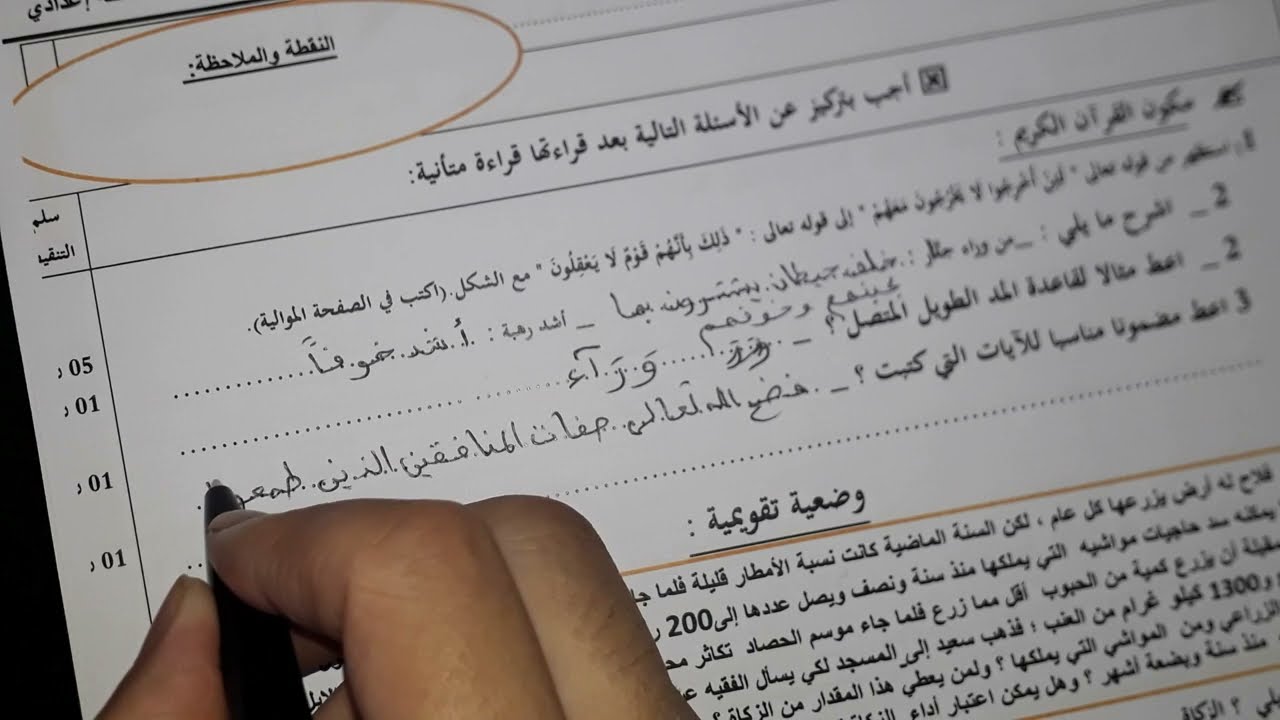 إعدادي
النقطة والملاحظة:
أجب بتركيز عن الأسئلة التالية بعد قراءتها قراءة متأنية:
مكون القرآن الكريم :
سلم
التنقيط
1) استظهر من قوله تعالى " لَئِنْ أُخْرِجُوا لَا يَخْرُجُونَ مَعَهُمْ " إلى قوله تعالى : " ذَلِكَ بِأَنَّهُمْ قَوْمٌ لَا يَعْقِلُونَ " مع الشكل.(اكتب في الصفحة الموالية).
05 ر
2 _ اشرح ما يلي : _من وراء جدار : خلف حيطان يستترون بها _ أشد رهبة : أشد خوفاً
لجبنهم وخوفهم
01 ر
2 _ اعط مثالا لقاعدة المد الطويل المتصل ؟ _ وَرَآء
01 ر
3 اعط مضمونا مناسبا للآيات التي كتبت ؟ _ فضح الله تعالى صفات المنافقين الذين
01 ر
وضعية تقويمية :
فلاح له أرض يزرعها كل عام ، لكن السنة الماضية كانت نسبة الأمطار قليلة فلما
يمكنه سد حاجيات مواشيه التي يملكها منذ سنة ونصف ويصل عددها إلى200
أن يزرع كمية من الحبوب أقل مما زرع فلما جاء موسم الحصاد تكاثر
و1300 كيلو غرام من العنب ؛ فذهب سعيد إلى المسجد لكي يسأل الفقيه
الزراعي ومن المواشي التي يملكها ؟ ولمن يعطي هذا المقدار من الزكاة ؟
منذ سنة وبضعة أشهر ؟ وهل يمكن اعتبار أداء
؟ الزكاة